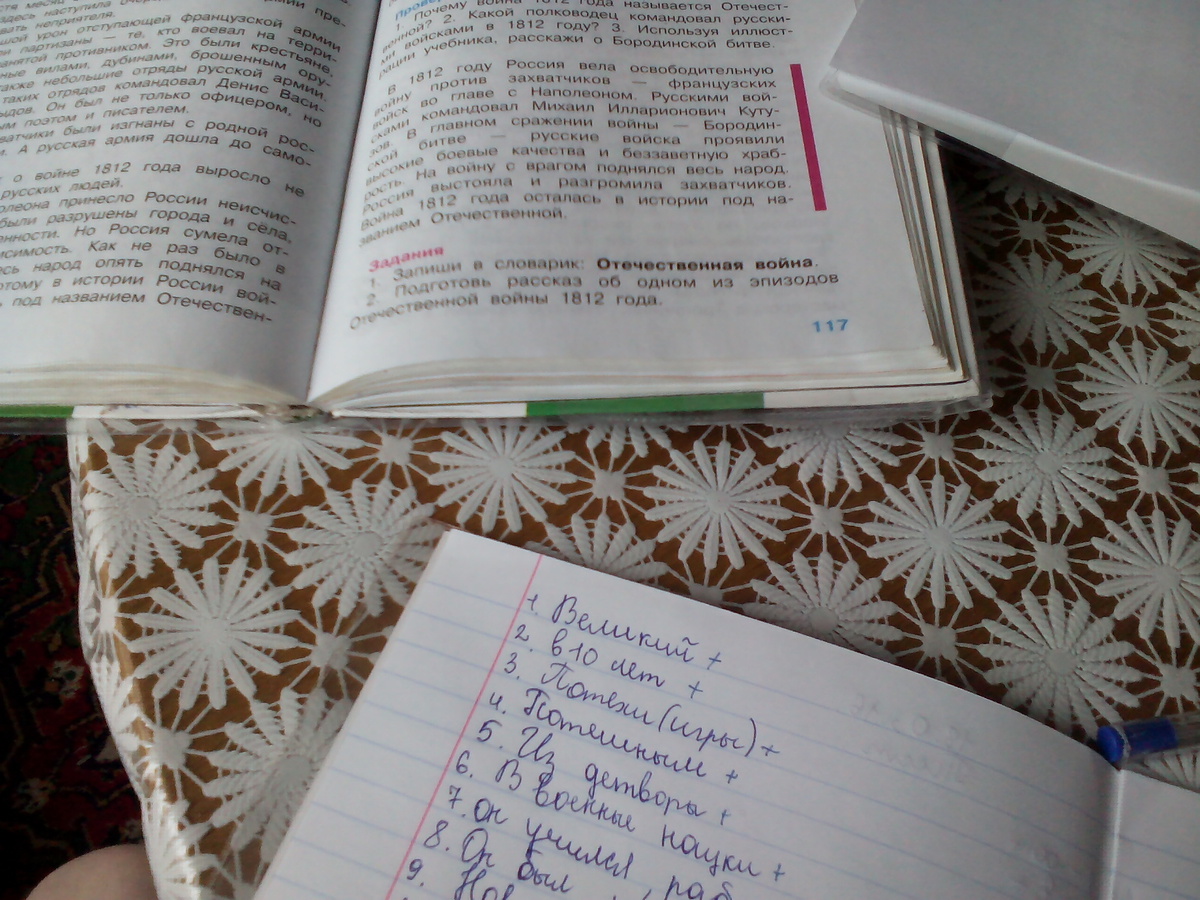 здесь наступила
вать неприятеля.
шой урон отступающей французской армии
ли партизаны — те, кто воевал на терри-
занятой противником. Это были крестьяне,
ные вилами, дубинами, брошенным ору-
также небольшие отряды русской армии.
таких отрядов командовал Денис Васи-
ыдов. Он был не только офицером, но
ым поэтом и писателем.
хватчики были изгнаны с родной рос-
и. А русская армия дошла до само-
о войне 1812 года выросло не
русских людей.
олеона принесло России неисчис-
были разрушены города и сёла,
енности. Но Россия сумела от-
исимость. Как не раз было в
есь народ опять поднялся на
этому в истории России вой-
под названием Отечествен-
1. Почему война 1812 года называется Отечест-
венной? 2. Какой полководец командовал русски-
ми войсками в 1812 году? 3. Используя иллюст-
рации учебника, расскажи о Бородинской битве.
В 1812 году Россия вела освободительную
войну против захватчиков — французских
войск во главе с Наполеоном. Русскими вой-
сками командовал Михаил Илларионович Куту-
зов. В главном сражении войны — Бородин-
ской битве — русские войска проявили
высокие боевые качества и беззаветную храб-
рость. На войну с врагом поднялся весь народ.
Россия выстояла и разгромила захватчиков.
Война 1812 года осталась в истории под на-
званием Отечественной.
Задания
1. Запиши в словарик: Отечественная война.
2. Подготовь рассказ об одном из эпизодов
Отечественной войны 1812 года.
117
1. Великий +
2. в 10 лет +
3. Потехи (игры) +
4. Потешным +
5. Из детворы +
6. В военные науки +
7. Он учился, раб
8. Он был
9.